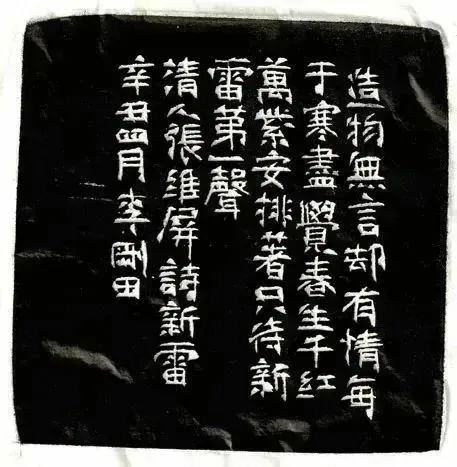 造物無言却有情每
于寒盡覺春生千紅
萬紫安排著只待新
雷第一聲
清人張維屏詩新雷
辛丑四月李剛田